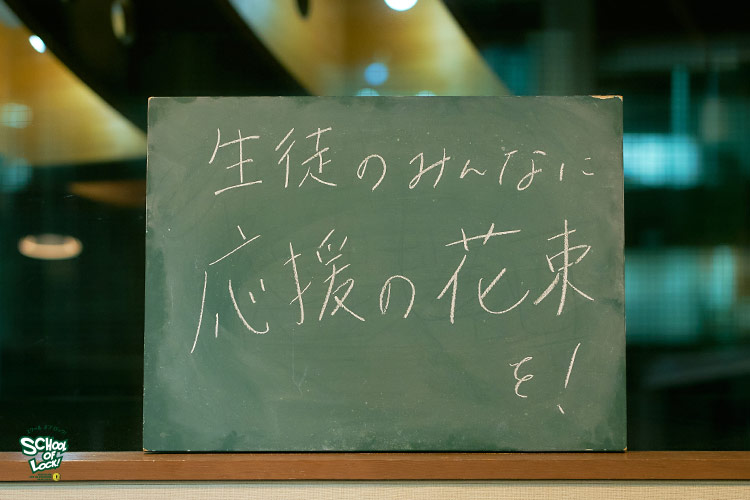 生徒のみんなに
応援の花束
を!
SCHOOL
OF
LOCK!